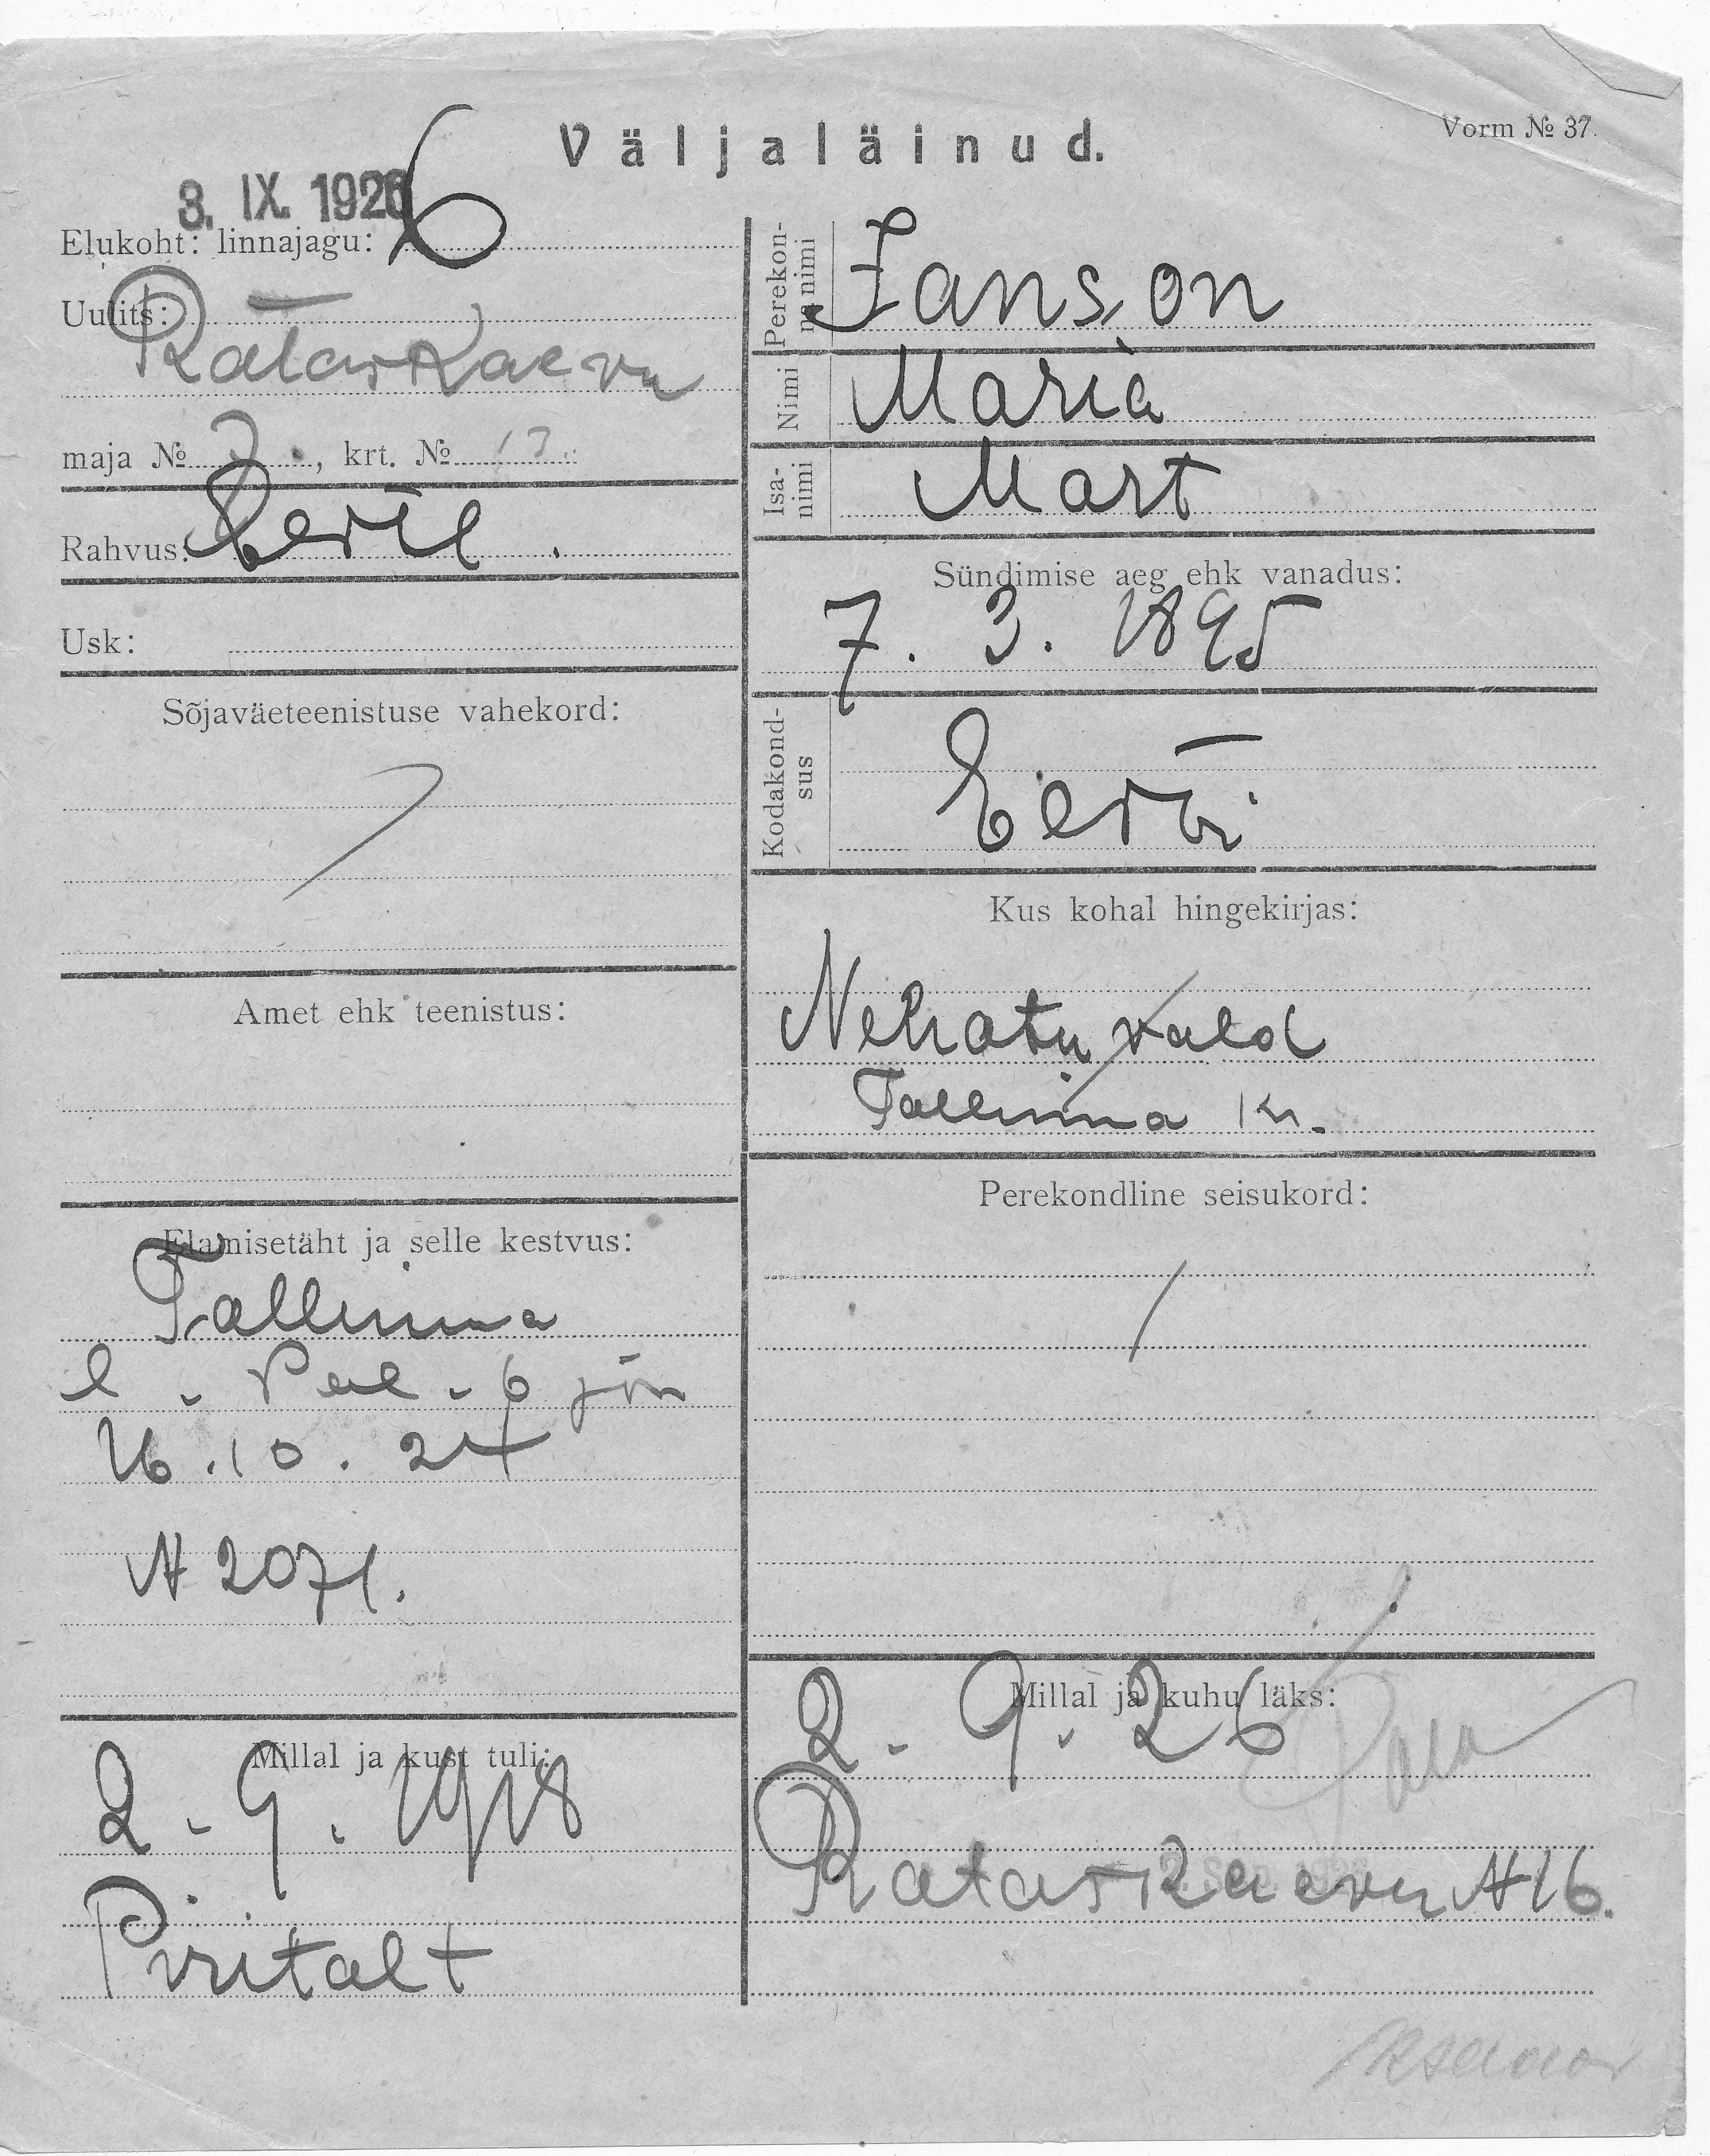 Väljaläinud.
Vorm № 37.
3. IX. 1926
Elukoht: linnajagu: 6
Uulits:
Rataskaevu
maja № 7., krt. № 13.
Rahvus: Eestl.
Usk:
Sõjaväeteenistuse vahekord:
Amet ehk teenistus:
Elamisetäht ja selle kestvus:
Tallinna
l. Pol. 6 jsk
16.10.24
№ 2071.
Millal ja kust tuli:
2. 9. 1918
Piritalt
Perekonna nimi
Janson
Nimi
Maria
Isanimi
Mart
Sündimise aeg ehk vanadus:
7. 3. 1895
Kodakondsus
Eesti
Kus kohal hingekirjas:
Nehatu vald
Tallinna kr.
Perekondline seisukord:
Millal ja kuhu läks:
2. 9. 26
Rataskaevu № 16.